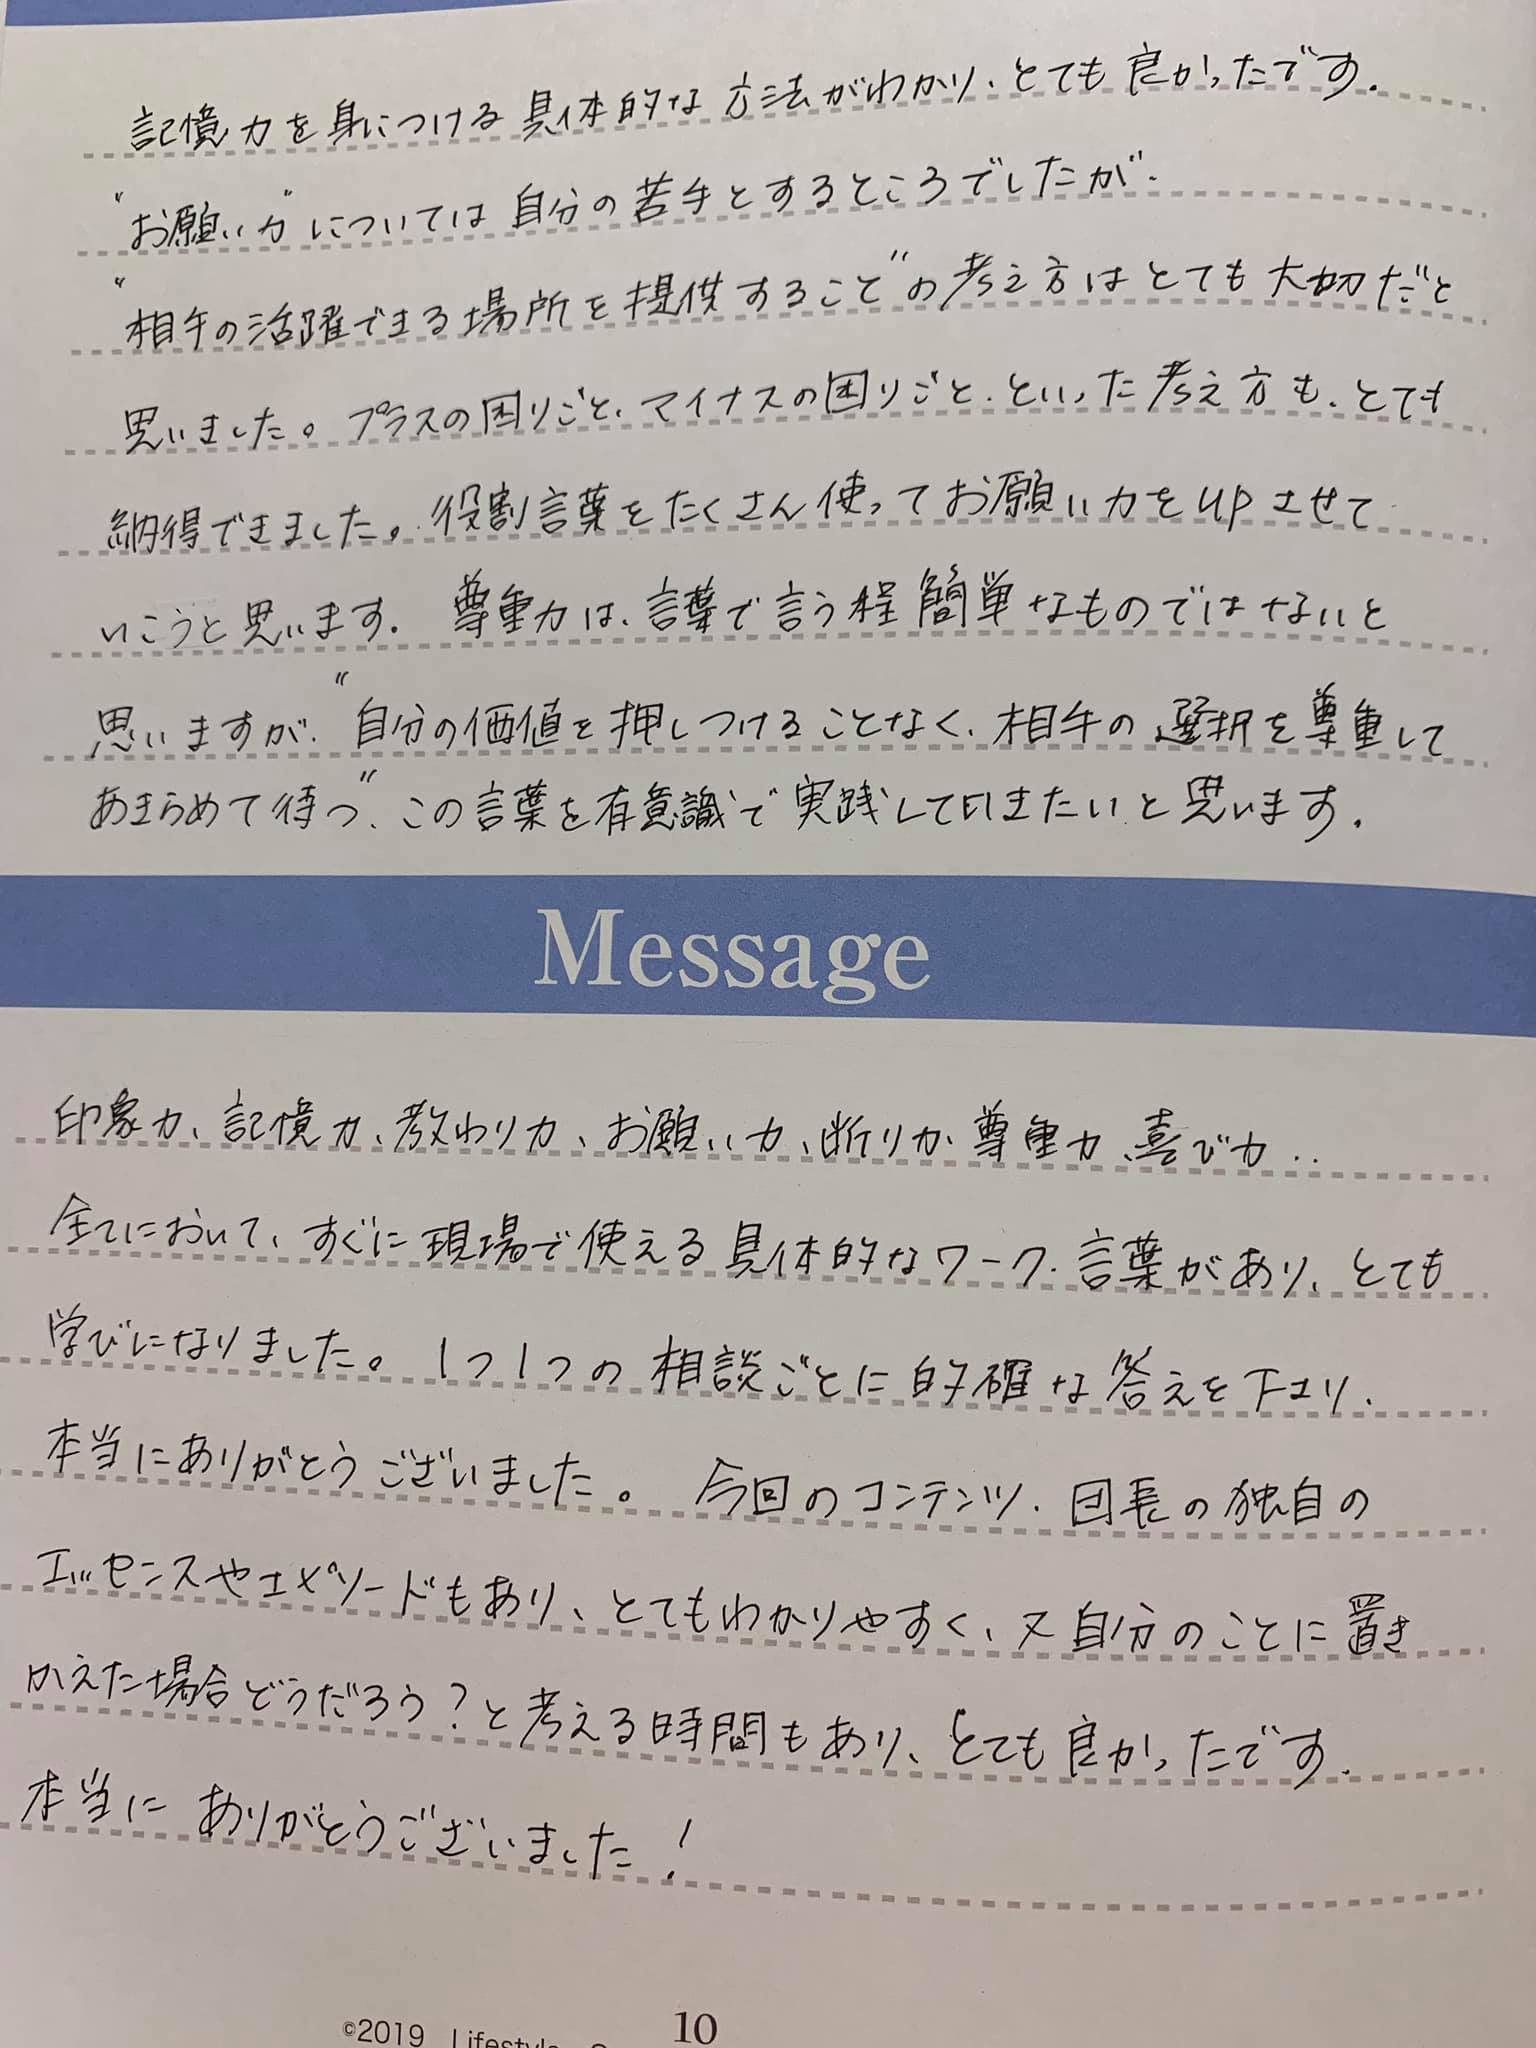 記憶力を身につける具体的な方法がわかり、とても良かったです。
"お願い力"については自分の苦手とするところでしたが、
"相手の活躍できる場所を提供すること"の考え方はとても大切だと
思いました。プラスの困りごと、マイナスの困りごと、といった考え方も、とても
納得できました。役割言葉をたくさん使ってお願い力をupさせて
いこうと思います。尊重力は、言葉で言う程簡単なものではないと
思いますが、"自分の価値を押しつけることなく、相手の選択を尊重して
あきらめて待つ"、この言葉を有意識で実践して行きたいと思います。
Message
印象力、記憶力、教わり力、お願い力、断り力、尊重力、喜び力..
全てにおいて、すぐに現場で使える具体的なワーク、言葉があり、とても
学びになりました。1つ1つの相談ごとに的確な答えを下さり、
本当にありがとうございました。今回のコンテンツ、団長の独自の
エッセンスやエピソードもあり、とてもわかりやすく、又自分のことに置き
かえた場合どうだろう？と考える時間もあり、とても良かったです。
本当にありがとうございました！
©2019 Lifestyle
10